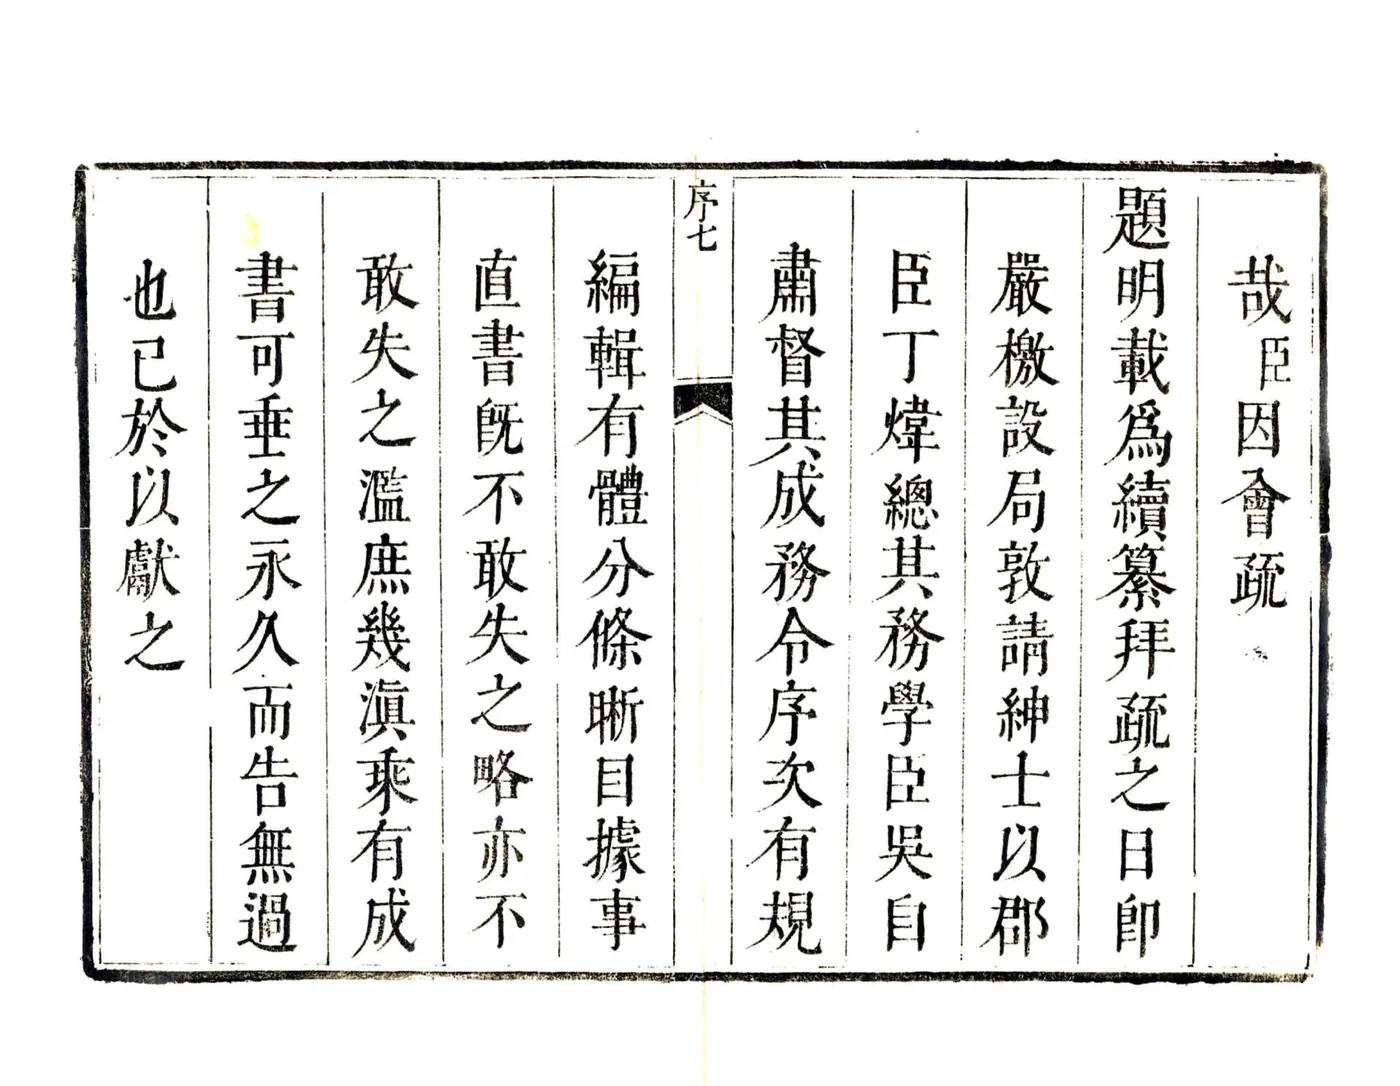 哉臣因會疏
題明載爲續纂拜疏之日卽
嚴檄設局敦請紳士以郡
臣丁煒總其務學臣吳自
肅督其成務令序次有規
序七
編輯有體分條晰目據事
直書旣不敢失之略亦不
敢失之濫庶幾滇乘有成
書可垂之永久而告無過
也已於以獻之